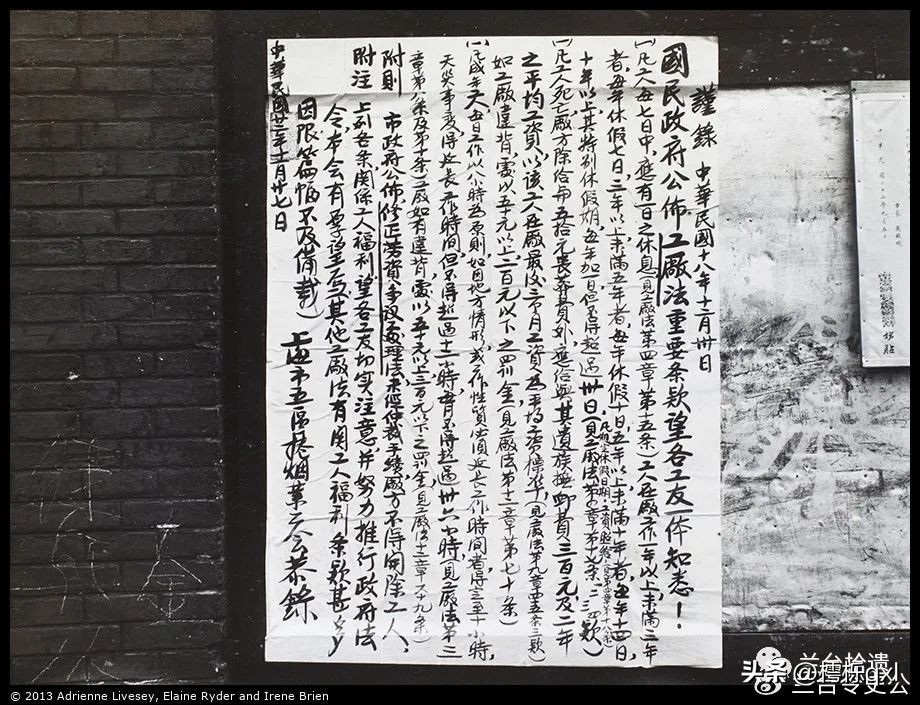 謹錄 中華民國十八年十二月卅日
國民政府公佈工厰法重要条欵望各工友一体知悉！
(一)凡工人每七日中，應有一日之休息(見工厰法第四章第十五条)工人在厰工作一年以上，未滿三年
者，每年休假七日，三年以上未滿五年者，每年休假十日，五年以上未滿十年者，每年十四日，
十年以上其特别休假期，每年加一日但不得超過卅日(見工厰法第四章第十七条一二三四欵)
凡例假休假日期工資照給(見第四章第十八条)
(一)凡工人死亡厰方除给與五拾元喪葬費外，應给與其遺族撫卹費三百元及二年
之平均工資，以該工人在厰最後三个月工資為平均工資標準(見工厰法第九章四十五条三欵)
如工厰違背處以五十元以上二百元以下之罰金(見工厰法第十二章第七十条)
(一)凡成年工人每日工作以八小時為原則，如因地方情形或工作性質必須延長工作時間者得定至十小時，
天災事變得延長工作時間但不得超過十二小時每月不得超過卅六小時(見工厰法第三
章第八条及第十条)工厰如有違背，處以五十元以上三百元以下之罰金(見工厰法十二章六十九条)
附則 市政府公佈修正劳資爭議處理法未經仲裁手續厰方不得開除工人。
附注 上列各条関係工人福利望各工友切实注意并努力推行政府法
令本会有厚望焉其他工厰法有関工人福利条欵甚多
因限篇幅不及備載) 上海市五區捲烟業工会恭錄
中華民國廿二年十一月廿七日
© 2013 Adrienne Livesey, Elaine Ryder and Irene Brien
兰台拾遗